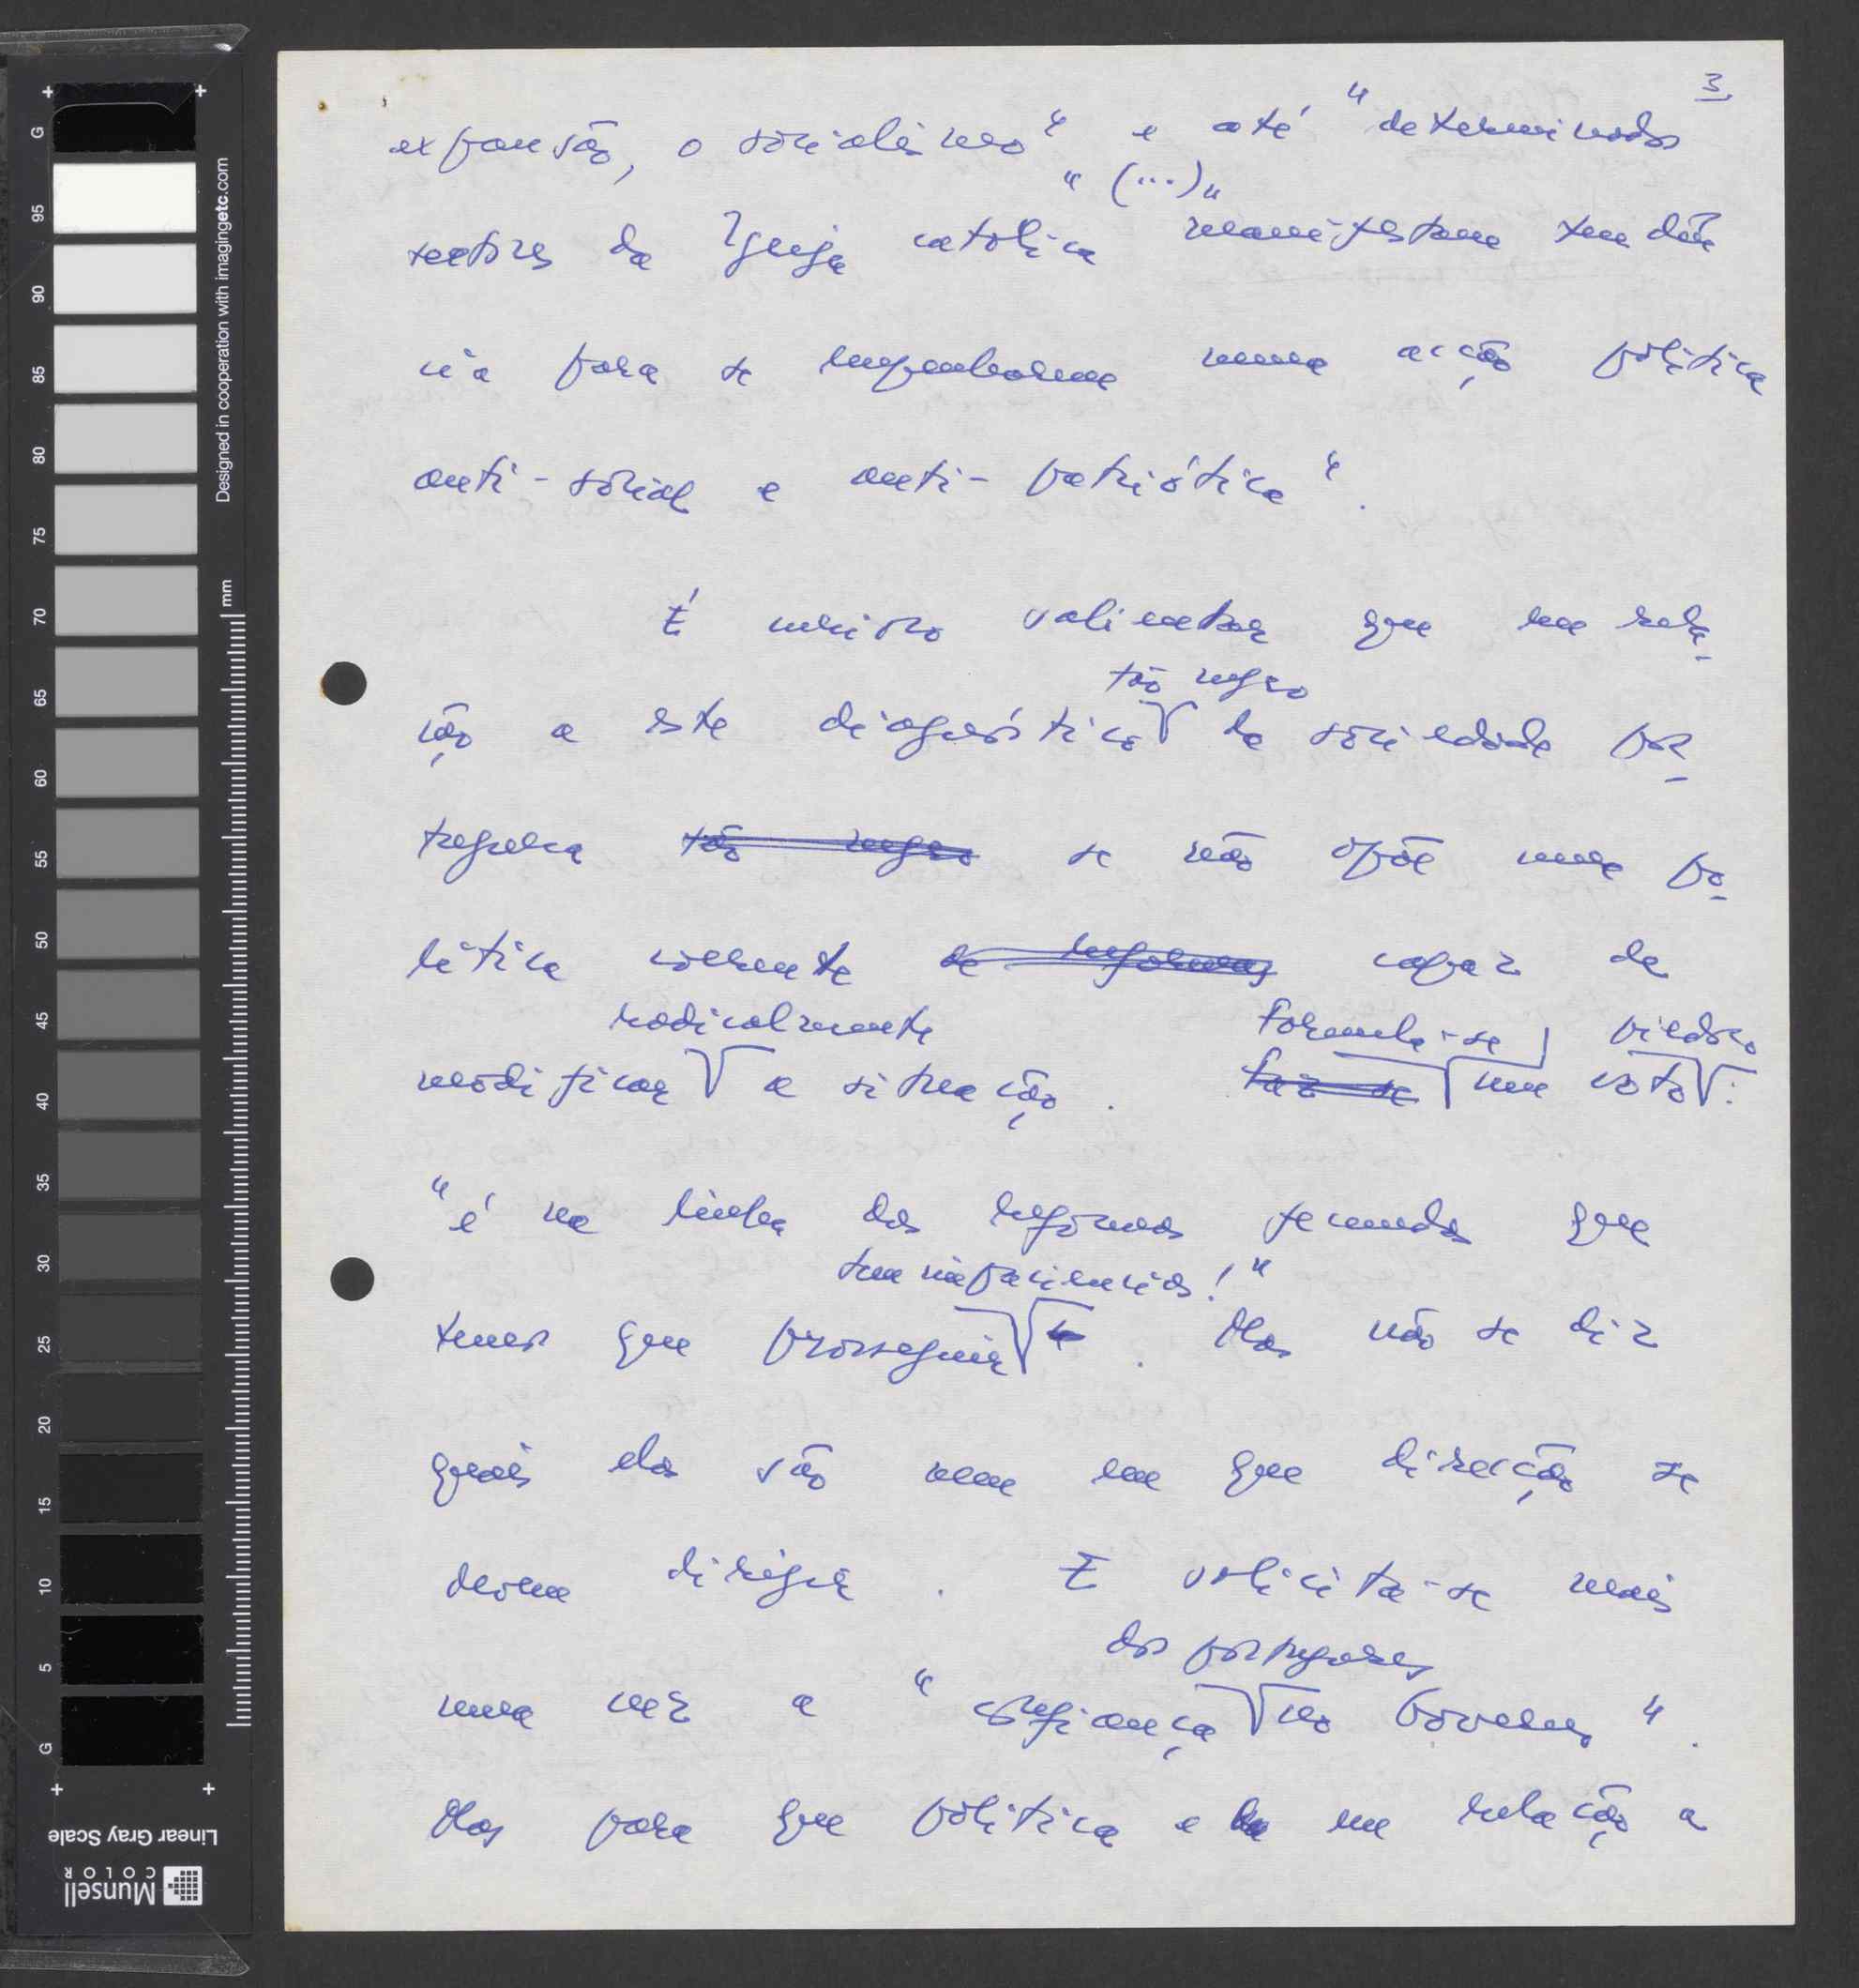 3.
expansão, o socialismo" e até "determinados
"(...)"
sectores da Igreja católica manifestam tendên
cia para se empenharem numa acção política
anti-social e anti-patriótica".
É muito salientar que em rela-
tão negro
ção a este diagnóstico da sociedade por-
tuguesa tão negro se não opõe uma po-
lítica coerente de reformas capaz de
radicalmente Formula-se piedoso
modificar a situação. Faz-se um voto:
"é na linha das reformas fecundas que
sem impaciencias!"
temos que prosseguir. Mas não se diz
quais elas são nem em que direcção se
devem dirigir. E solicita-se mais
dos portugueses
uma vez a "confiança no Governo".
Mas para que política e em relação a
Designed in cooperation with imagingetc.com
mm
G 95 90 85 80 75 70 65 60 55 50 45 40 35 30 25 20 15 10 5 G
Linear Gray Scale
Munsell
COLOR